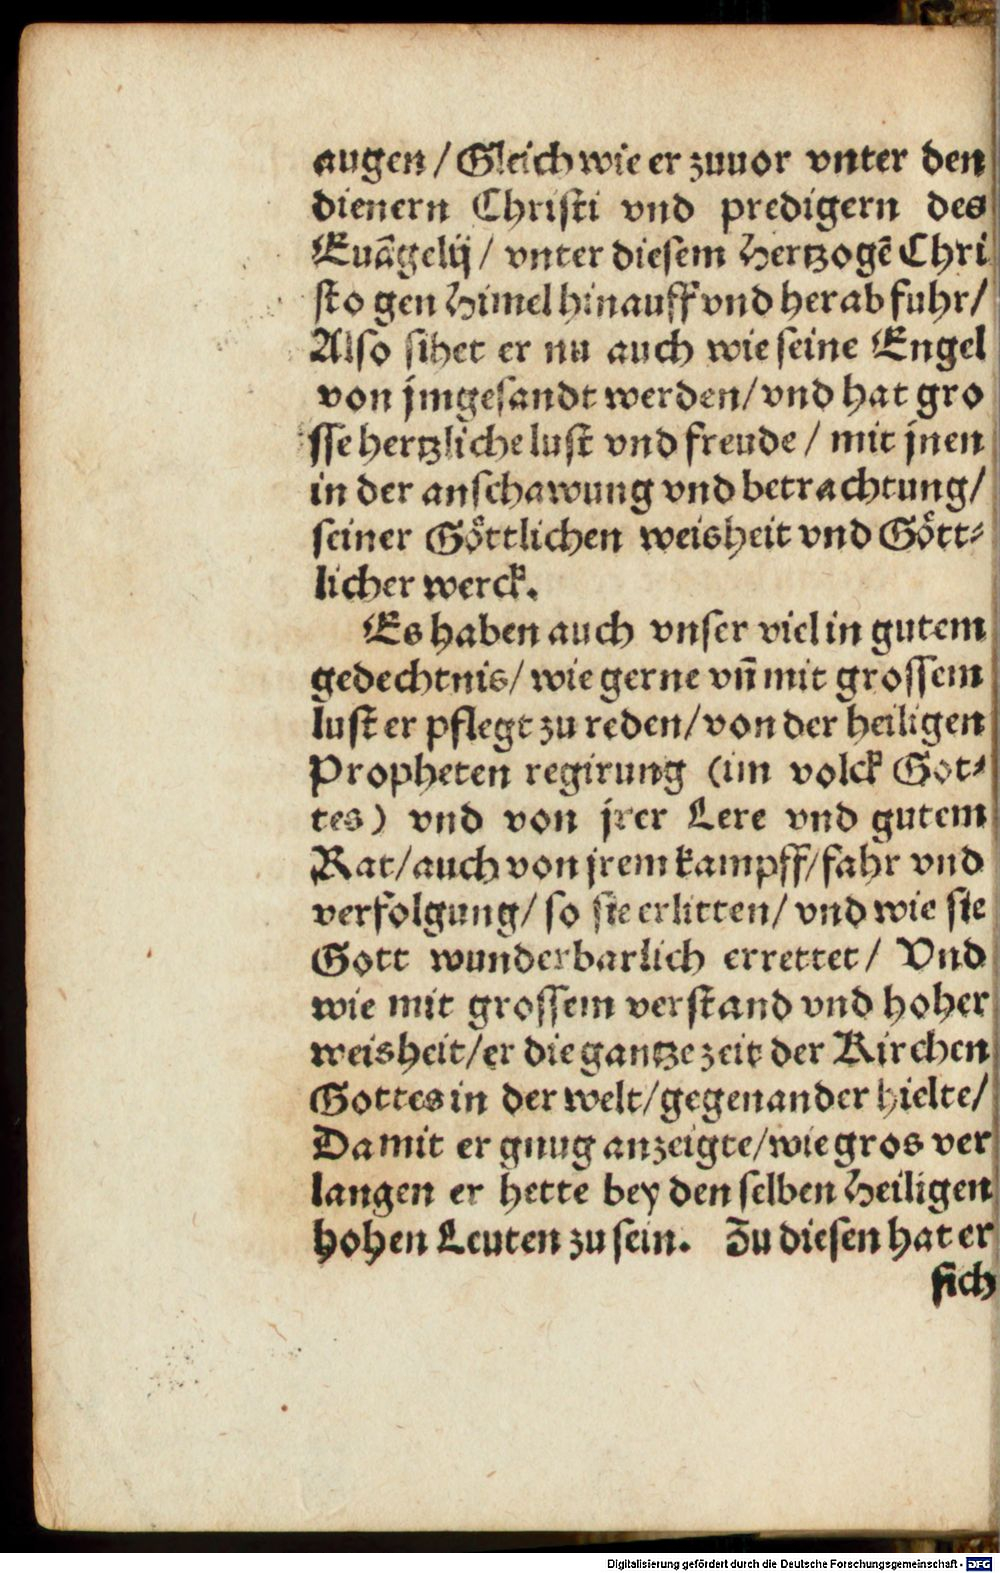 augen / Gleich wie er zuuor vnter den
dienern Christi vnd predigern des
Euãgelij / vnter diesem Hertzogẽ Chri
sto gen Himel hinauff vnd herab fuhr /
Also sihet er nu auch wie seine Engel
von jm gesandt werden / vnd hat gro
sse hertzliche lust vnd freude / mit jnen
in der anschawung vnd betrachtung /
seiner Göttlichen weisheit vnd Gött-
licher werck.
Es haben auch vnser viel in gutem
gedechtnis / wie gerne vñ mit grossem
lust er pflegt zu reden / von der heiligen
Propheten regirung (im volck Got-
tes) vnd von jrer Lere vnd gutem
Rat / auch von jrem kampff / fahr vnd
verfolgung / so sie erlitten / vnd wie sie
Gott wunderbarlich errettet / Vnd
wie mit grossem verstand vnd hoher
weisheit / er die gantze zeit der Kirchen
Gottes in der welt / gegenander hielte /
Damit er gnug anzeigte / wie gros ver
langen er hette bey den selben Heiligen
hohen Leuten zu sein. Zu diesen hat er
sich
Digitalisierung gefördert durch die Deutsche Forschungsgemeinschaft - DFG